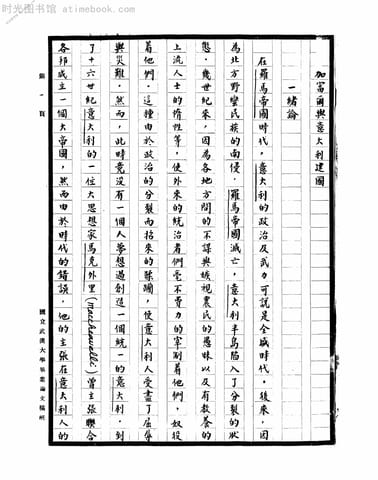 时光图书馆 atimebook.com
加富爾與意大利建國
一 緒論
在羅馬帝國時代，意大利的政治及武力可說是全盛時代，後來，因
為北方野蠻民族的南侵，羅馬帝國滅亡，意大利半島陷入了分裂的狀
態，幾世紀來，因為各地方間的不謀與嫉視農民的愚昧以及有教養的
上流人士的惰性等，使外來的統治者們毫不費力的宰割着他們，奴役
着他們，這種由於政治的分裂而招來的
使意大利人受盡了屈辱
與災難，然而，此時竟沒有一個人夢想過創造一個統一的意大利，到
了十六世紀意大利的一位大思想家馬克外里(maccheavelli)曾主張聯合
各邦成立一個大帝國，然而由於時代的錯誤，他的主張在意大利人的
第一頁
國立武漢大學畢業論文稿紙